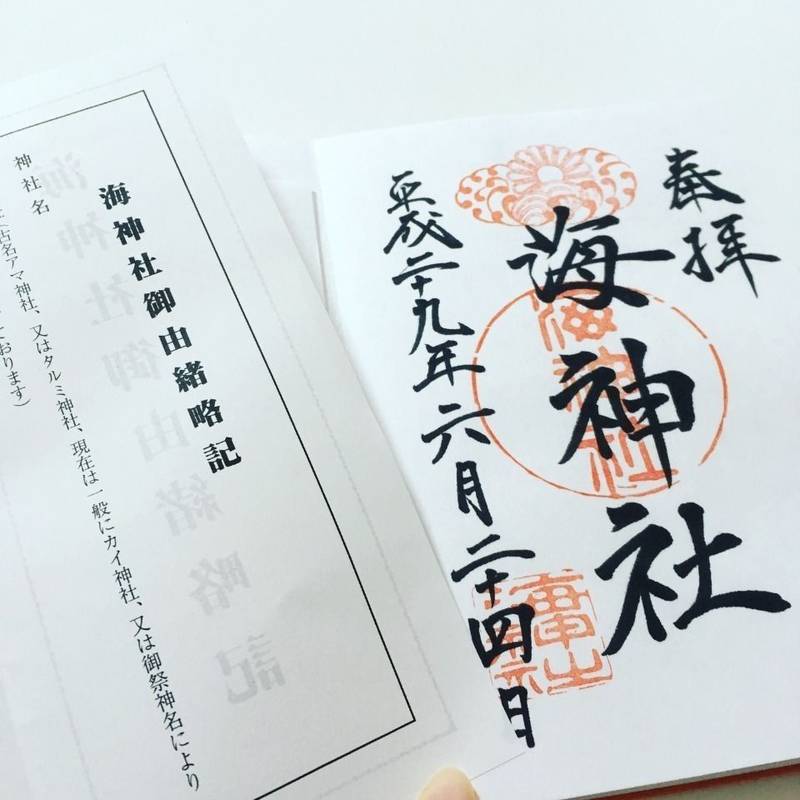 海神社御由緒略記
神社名
古名アマ神社、又はタルミ神社、現在は一般にカイ神社、又は御祭神名により
おります)
奉拝
海神社
平成二十九年六月二十四日
海神社